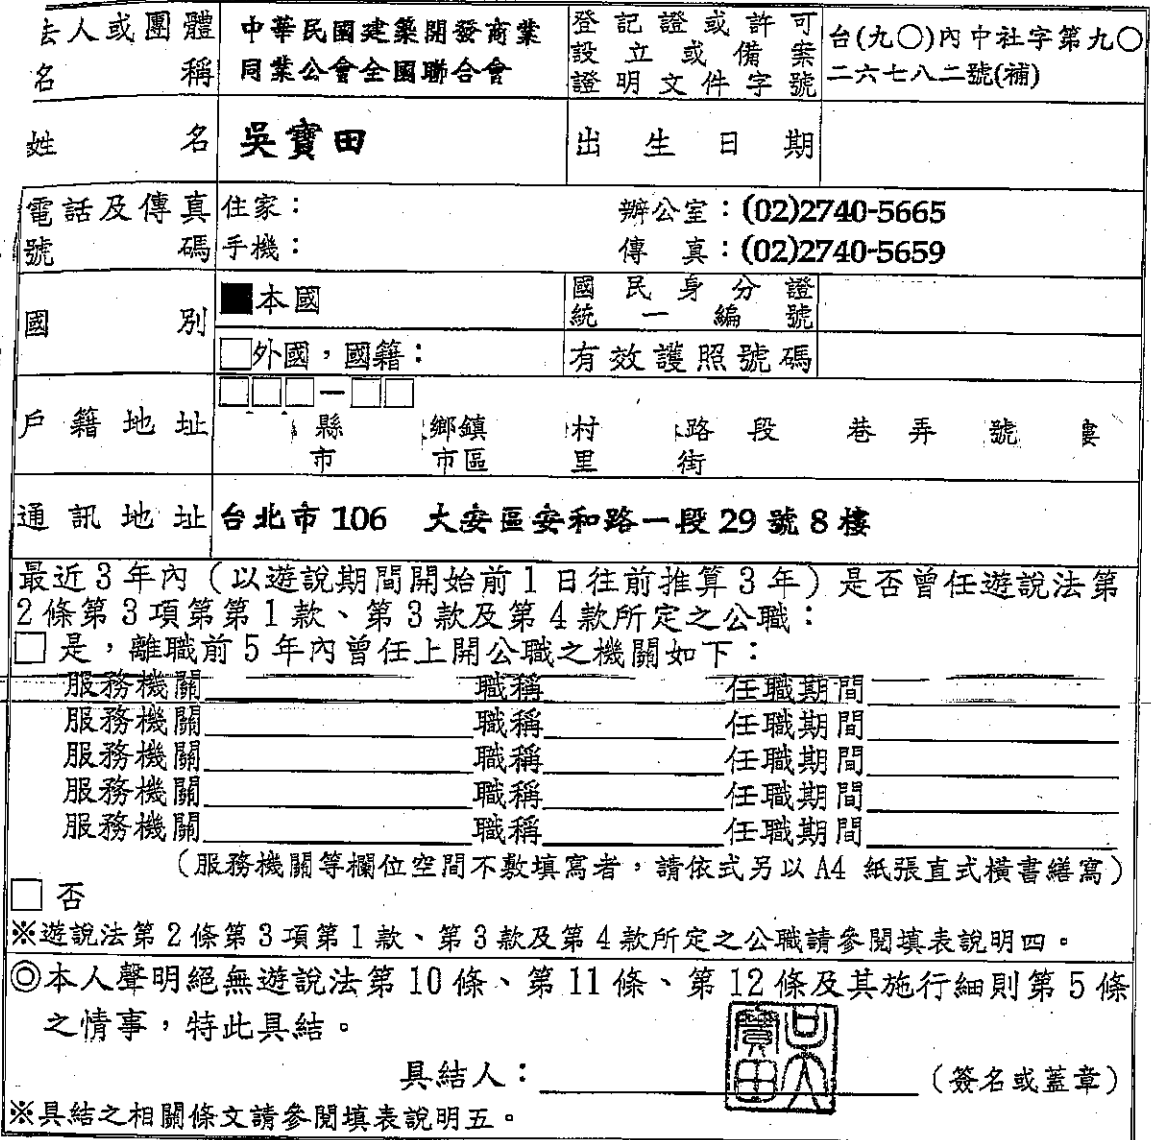 法人或團體名稱 中華民國建築開發商業同業公會全國聯合會 登記證或許可設立或備案證明文件字號 台(九〇)內中社字第九〇二六七八二號(補)
姓名 吳寶田 出生日期
電話及傳真號碼 住家： 辦公室：(02)2740-5665
手機： 傳真：(02)2740-5659
國別 ■本國 國民身分證統一編號
□外國，國籍： 有效護照號碼
戶籍地址 □□□－□□
縣 鄉鎮 村 路 段 巷 弄 號 樓
市 市區 里 街
通訊地址 台北市 106 大安區安和路一段 29 號 8 樓
最近 3 年內（以遊說期間開始前 1 日往前推算 3 年）是否曾任遊說法第
2 條第 3 項第第 1 款、第 3 款及第 4 款所定之公職：
□是，離職前 5 年內曾任上開公職之機關如下：
服務機關 職稱 任職期間
服務機關 職稱 任職期間
服務機關 職稱 任職期間
服務機關 職稱 任職期間
服務機關 職稱 任職期間
（服務機關等欄位空間不敷填寫者，請依式另以 A4 紙張直式橫書繕寫）
□否
※遊說法第 2 條第 3 項第 1 款、第 3 款及第 4 款所定之公職請參閱填表說明四。
◎本人聲明絕無遊說法第 10 條、第 11 條、第 12 條及其施行細則第 5 條
之情事，特此具結。
具結人： 吳寶田 （簽名或蓋章）
※具結之相關條文請參閱填表說明五。